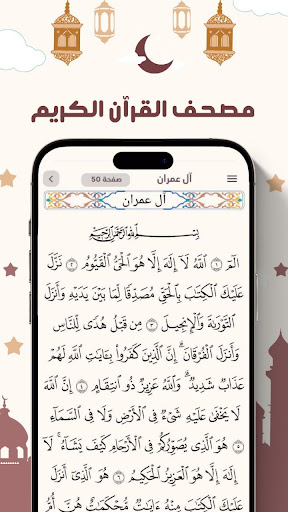 مصحف القرآن الكريم
آل عمران
صفحة 50
آل عمران
بِسْمِ ٱللَّهِ ٱلرَّحْمَٰنِ ٱلرَّحِيمِ
الٓمٓ ۝١ ٱللَّهُ لَآ إِلَٰهَ إِلَّا هُوَ ٱلْحَىُّ ٱلْقَيُّومُ ۝٢ نَزَّلَ
عَلَيْكَ ٱلْكِتَٰبَ بِٱلْحَقِّ مُصَدِّقًا لِّمَا بَيْنَ يَدَيْهِ وَأَنزَلَ
ٱلتَّوْرَىٰةَ وَٱلْإِنجِيلَ ۝٣ مِن قَبْلُ هُدًى لِّلنَّاسِ
وَأَنزَلَ ٱلْفُرْقَانَ ۗ إِنَّ ٱلَّذِينَ كَفَرُوا۟ بِـَٔايَٰتِ ٱللَّهِ لَهُمْ
عَذَابٌ شَدِيدٌ ۗ وَٱللَّهُ عَزِيزٌ ذُو ٱنتِقَامٍ ۝٤ إِنَّ ٱللَّهَ
لَا يَخْفَىٰ عَلَيْهِ شَىْءٌ فِى ٱلْأَرْضِ وَلَا فِى ٱلسَّمَآءِ
۝٥ هُوَ ٱلَّذِى يُصَوِّرُكُمْ فِى ٱلْأَرْحَامِ كَيْفَ يَشَآءُ ۚ لَآ
إِلَٰهَ إِلَّا هُوَ ٱلْعَزِيزُ ٱلْحَكِيمُ ۝٦ هُوَ ٱلَّذِىٓ أَنزَلَ
عَلَيْكَ ٱلْكِتَٰبَ مِنْهُ ءَايَٰتٌ مُّحْكَمَٰتٌ هُنَّ أُمُّ